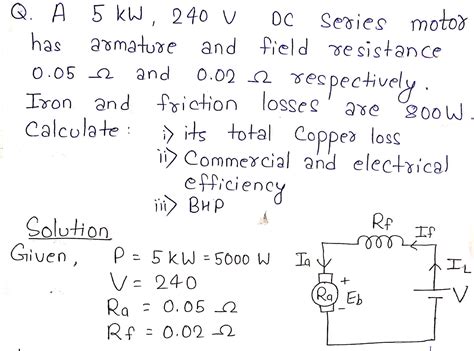 Q. A 5 kW, 240 V DC Series motor
has armature and field resistance
0.05 Ω and 0.02 Ω respectively.
Iron and friction losses are 800W.
Calculate : i) its total Copper loss
ii) Commercial and electrical
efficiency
iii) BHP
Solution
Given, P = 5 kW = 5000 W
V = 240
Ra = 0.05 Ω
Rf = 0.02 Ω
Rf
If
Ia
IL
+
Ra
Eb
-
V